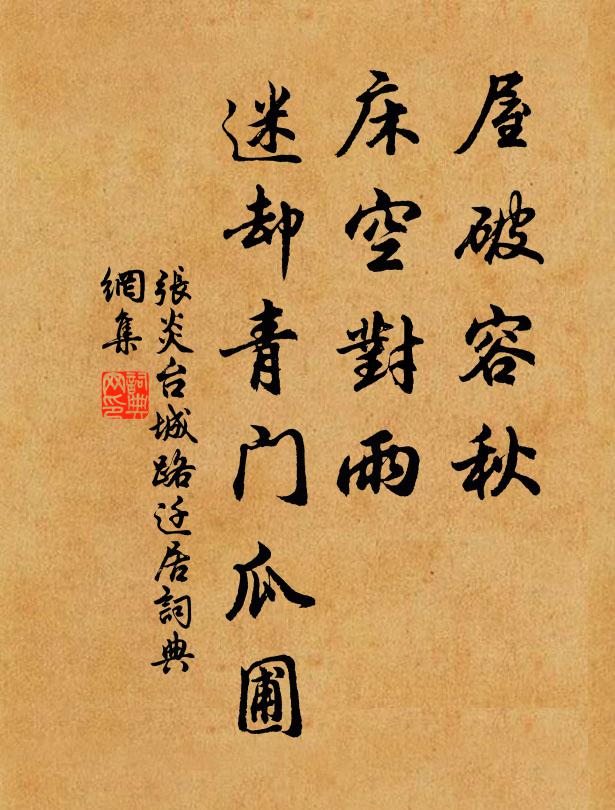 屋破容秋
床空對雨
迷却青门瓜圃
張炎台城路迁居詞典
網集
詞典网印